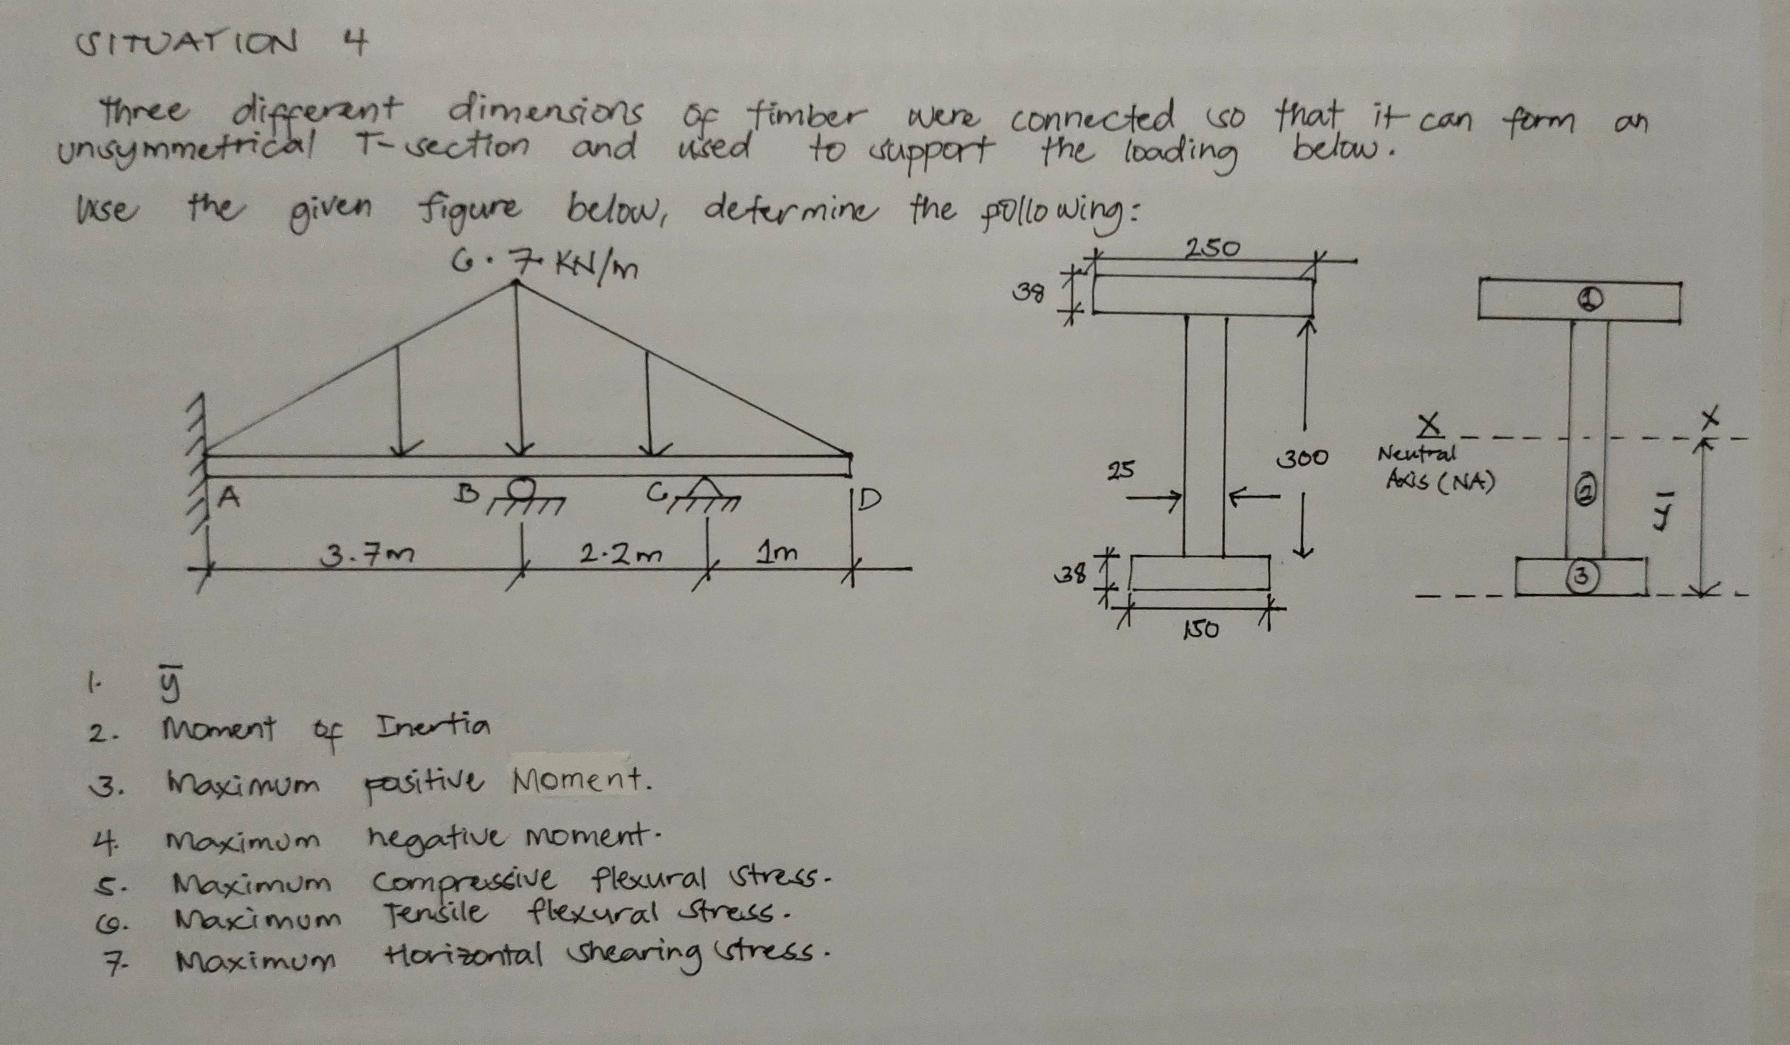 SITUATION 4
Three different dimensions of timber were connected so that it can form an
unsymmetrical T-section and used to support the loading below.
Use the given figure below, determine the following:
6.7 KN/m
250
38
1
X
X
Neutral
Axis (NA)
25
300
2
ȳ
A
B
C
D
3.7m
2.2m
1m
38
3
150
1. ȳ
2. Moment of Inertia
3. Maximum positive Moment.
4. Maximum negative moment.
5. Maximum Compressive flexural stress.
6. Maximum Tensile flexural stress.
7. Maximum Horizontal shearing stress.